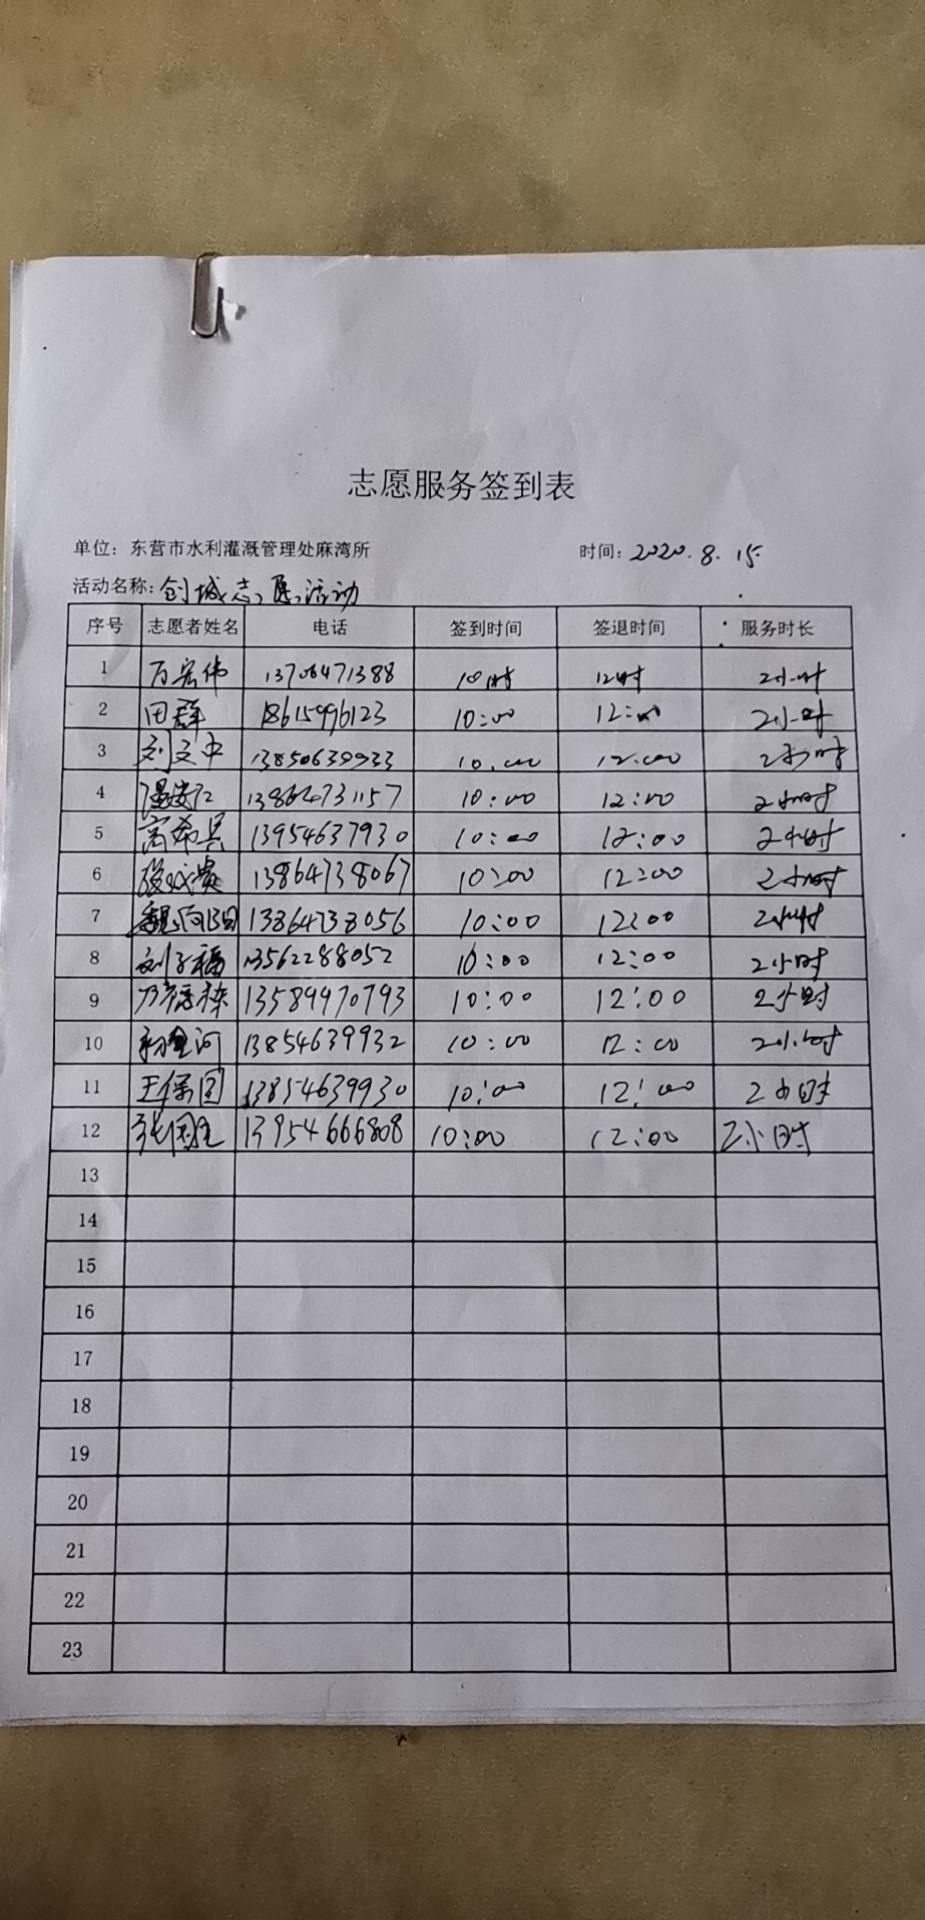 志愿服务签到表
单位：东营市水利灌溉管理处麻湾所 时间：2020.8.15.
活动名称：创城志愿活动
序号 志愿者姓名 电话 签到时间 签退时间 服务时长
1 万宏伟 13706471388 10时 12时 2小时
2 田群 18615996123 10:00 12:00 2小时
3 刘文中 13850639933 10:00 12:00 2小时
4 13864731157 10:00 12:00 2小时
5 高希兵 13954637930 10:00 12:00 2小时
6 13864738067 10:00 12:00 2小时
7 13864738056 10:00 12:00 2小时
8 刘子福 13562288052 10:00 12:00 2小时
9 13589970793 10:00 12:00 2小时
10 13854639932 10:00 12:00 2小时
11 王保国 13854639930 10:00 12:00 2小时
12 张国生 13954666808 10:00 12:00 2小时
13
14
15
16
17
18
19
20
21
22
23